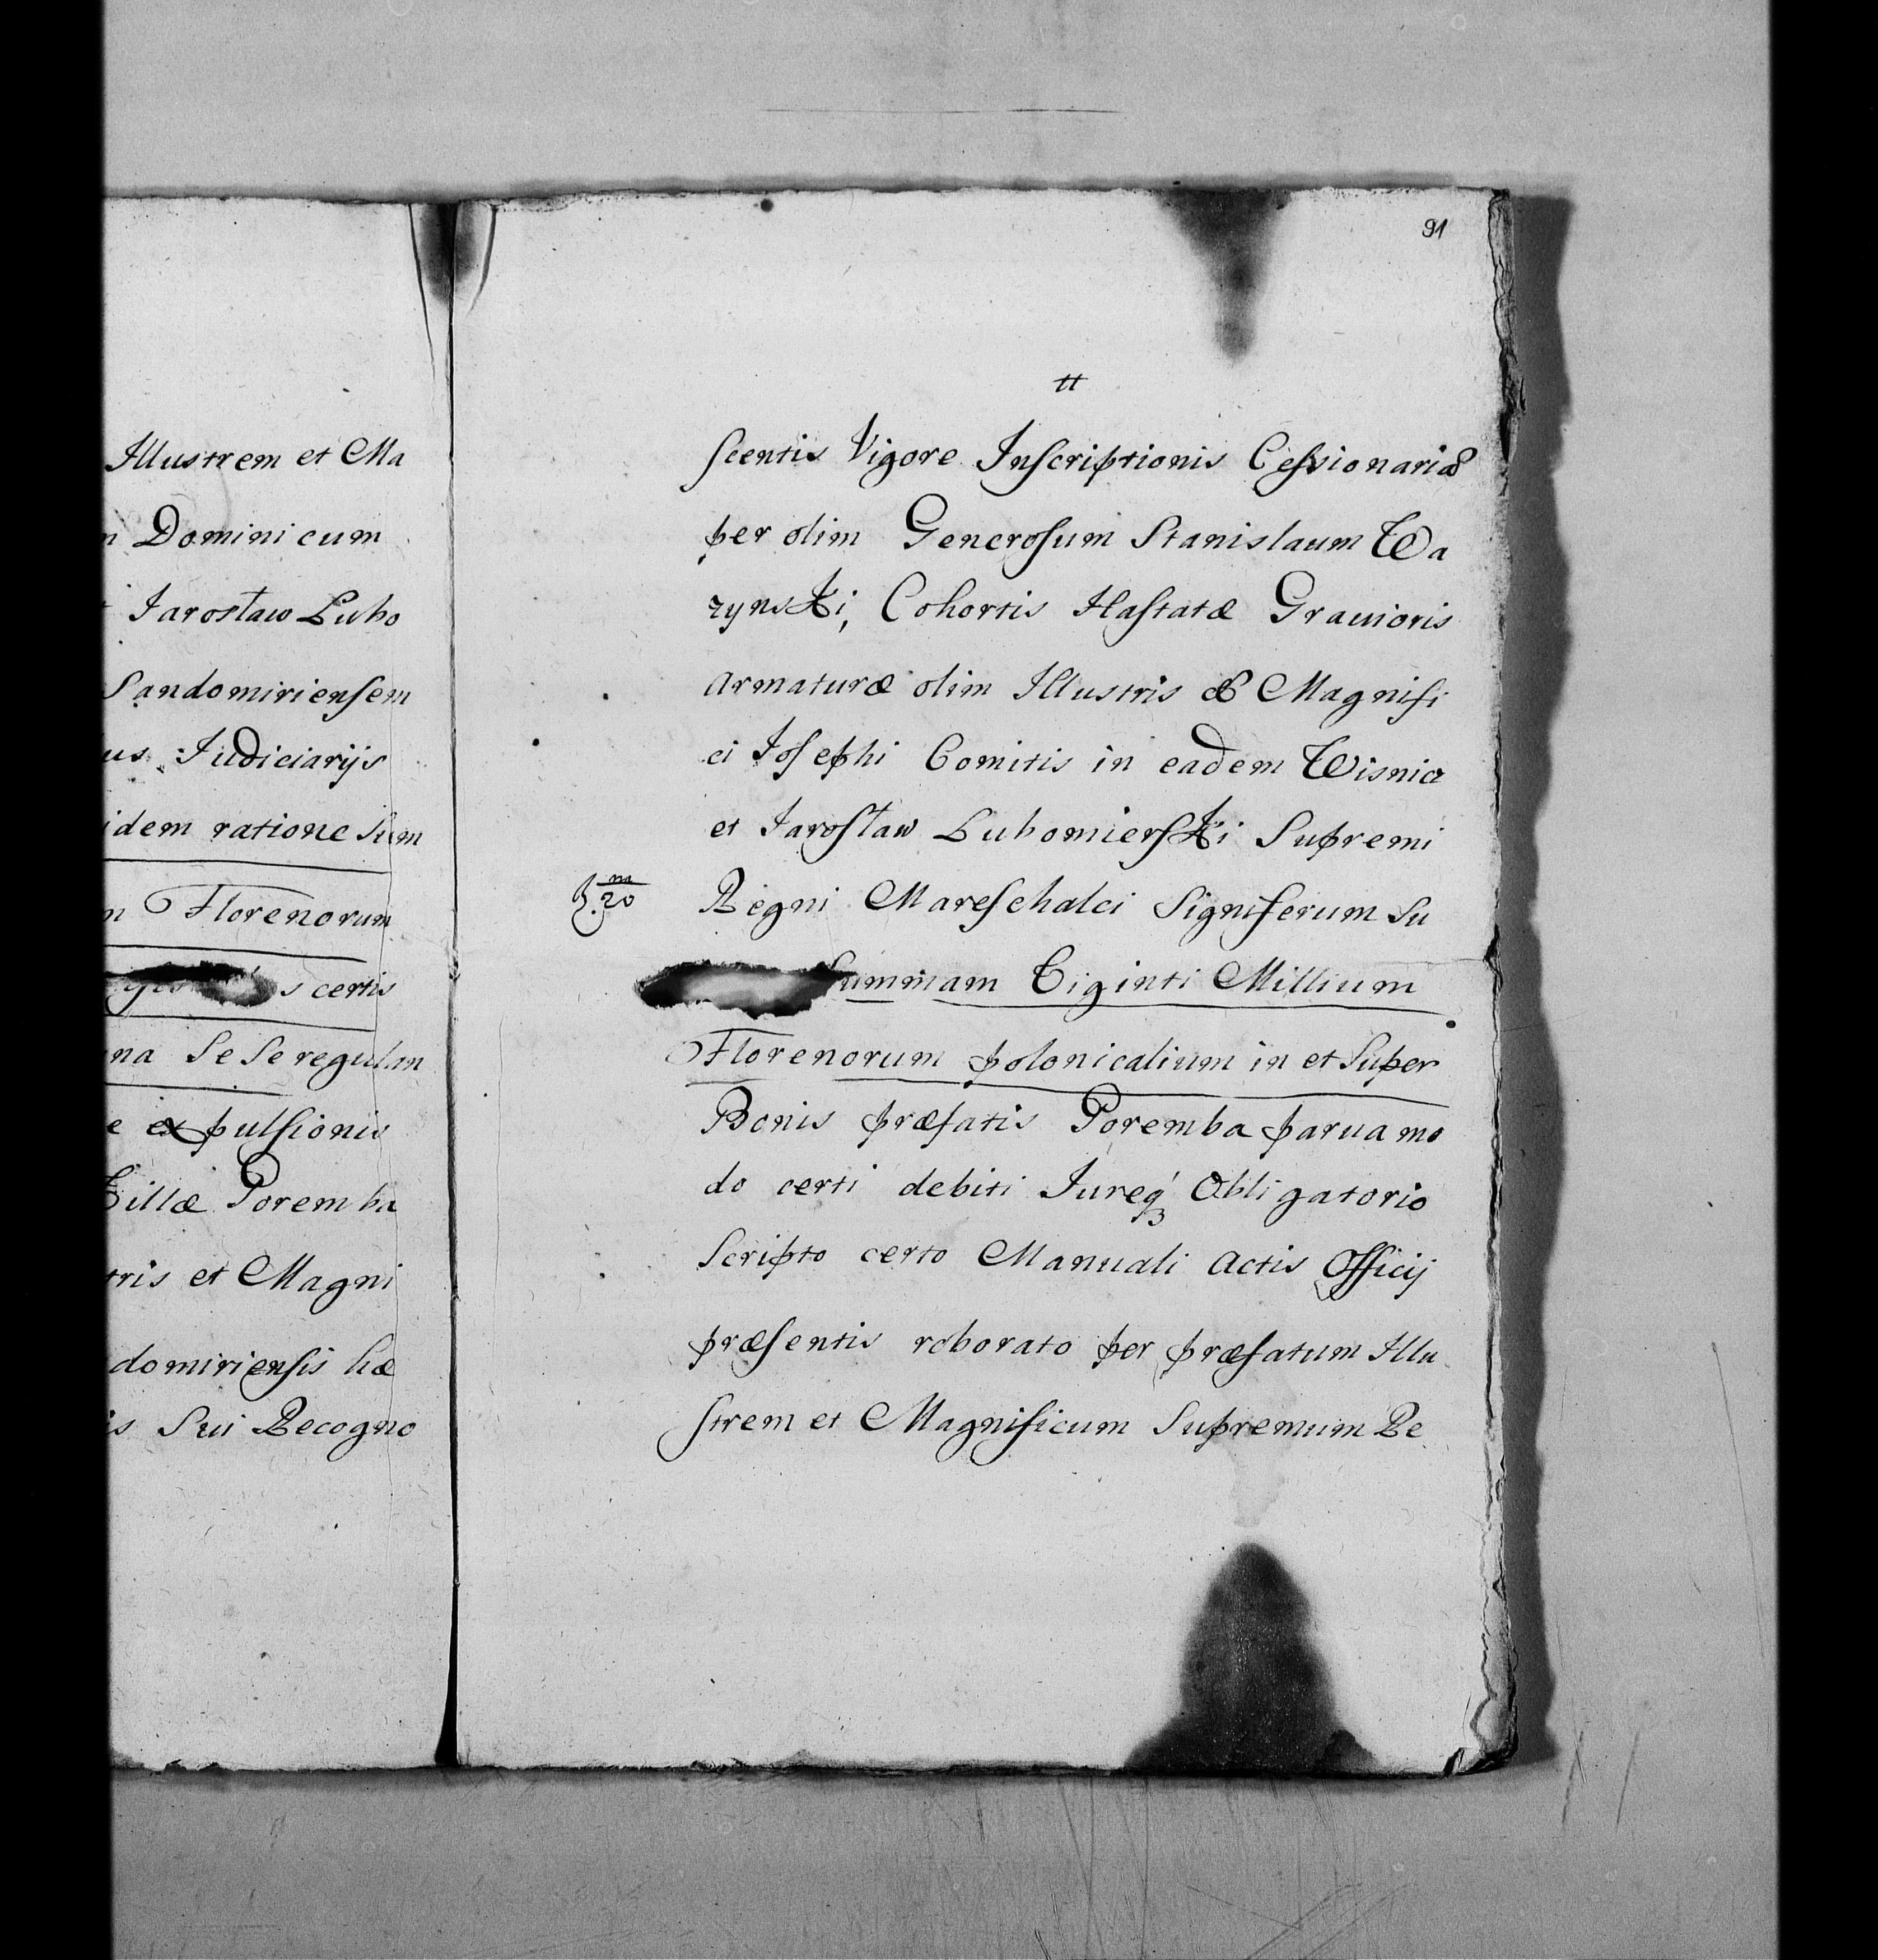 Illustrem et Ma
n Dominicum
Jarosław Lubo
Sandomiriensem
us Judiciarijs
idem ratione Sum
m Florenorum
s certis
na Se Se regulan
e expulsionis
Villæ Poremba
tris et Magni
domiriensis hæ
is Sui Recogno
91
tt
scentis Vigore Inscriptionis Cessionariæ
per olim Generosum Stanislaum Wa
rynski, Cohortis Hastatæ Grauioris
Armaturæ olim Illustris & Magnifi
ci Josephi Comitis in eadem Wisnicz
et Jarosław Lubomierski Supremi
20 Regni Mareschalci Signiferum Su
Summam Viginti Millium
Florenorum polonicalium in et Super
Bonis præfatis Poremba parua mo
do certi debiti Jureq́ Obligatorio
Scripto certo Manuali Actis Officij
præsentis roborato per præfatum Illu
strem et Magnificum Supremum Re